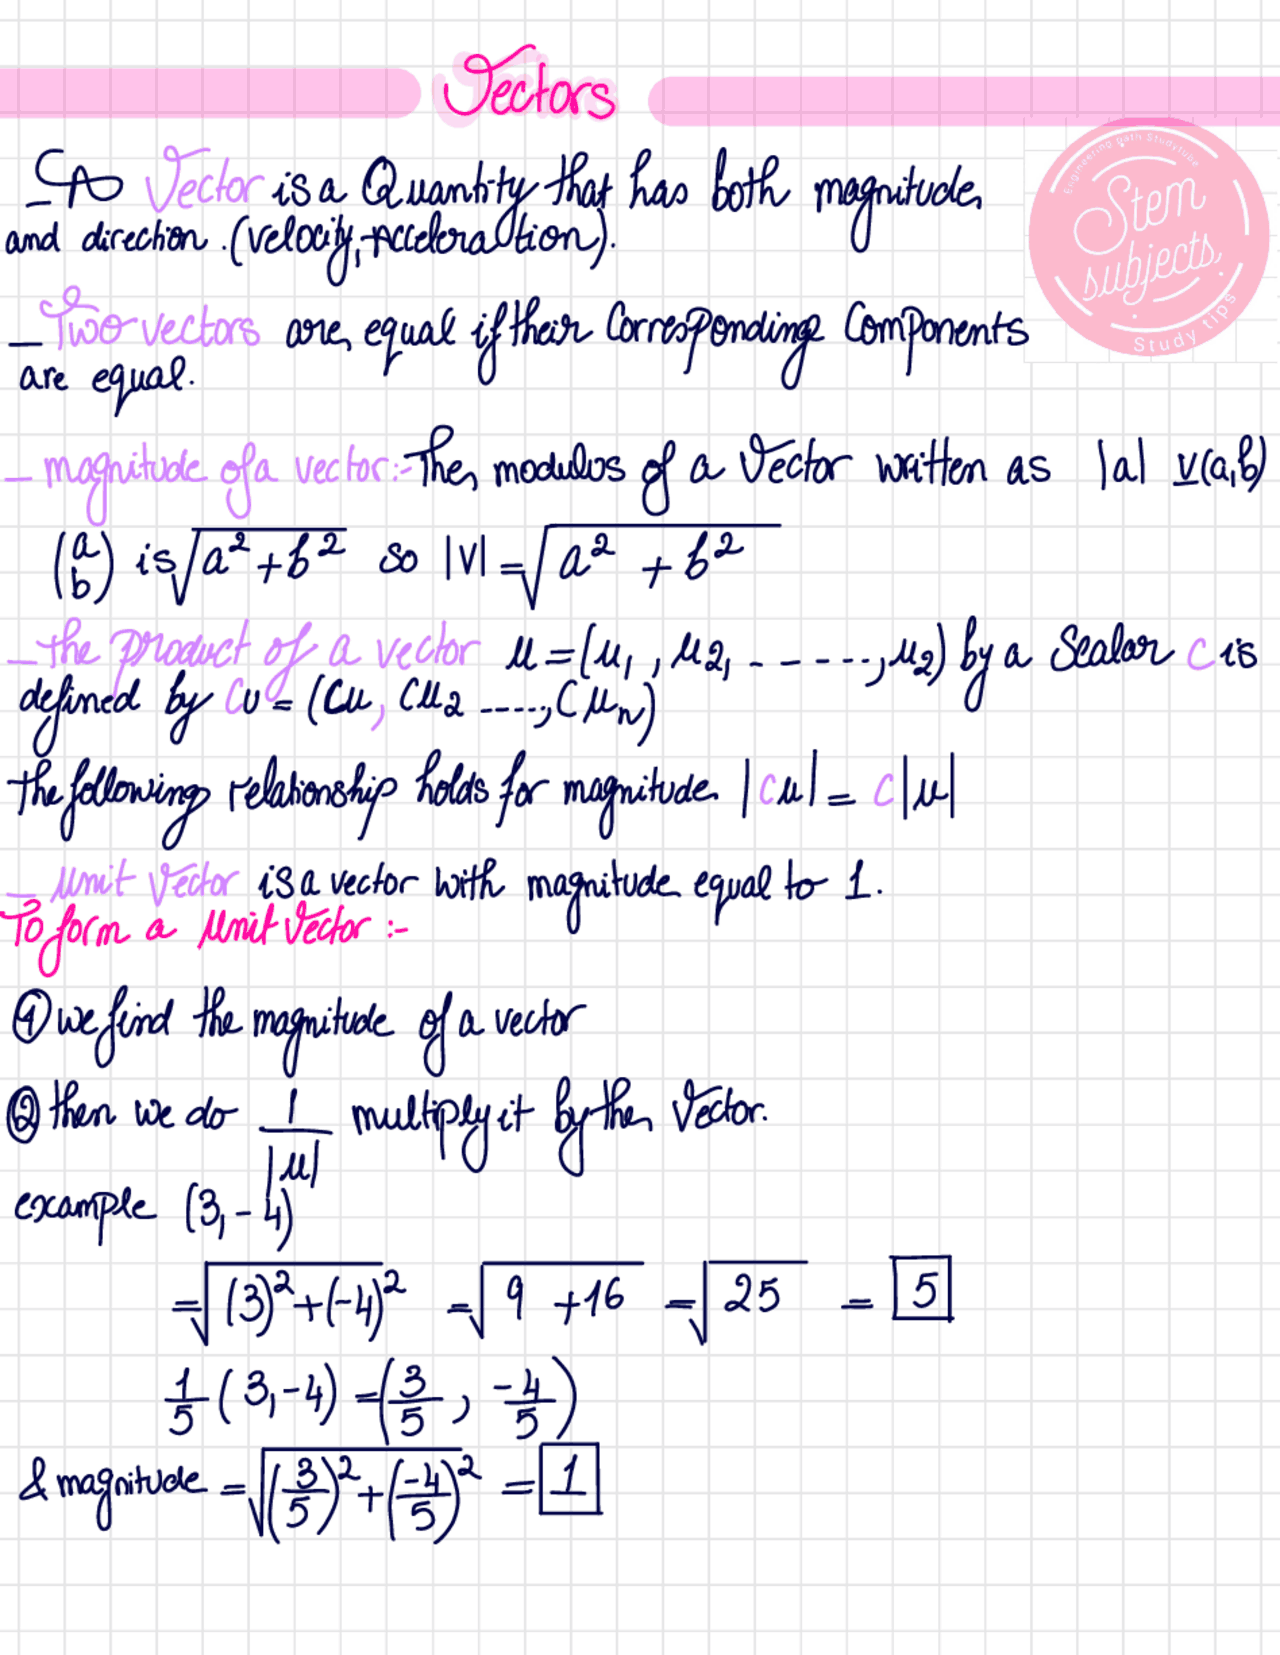 Vectors
Engineering path Studytube
Stem
subjects
Study tips
_ A Vector is a Quantity that has both magnitude
and direction. (velocity, Acceleration).
_ Two vectors are equal if their Corresponding Components
are equal.
_ magnitude of a vector:- The modulus of a Vector written as |a| v(a,b)
(a b) is √a²+b² so |V| = √a² + b²
_ the product of a vector u = (u₁, u₂, -----, u₂) by a Scalar c is
defined by Cu = (Cu, Cu₂ ----, Cuₙ)
the following relationship holds for magnitude |cu| = c|u|
_ unit Vector is a vector with magnitude equal to 1.
To form a Unit Vector :-
① we find the magnitude of a vector
② then we do 1/|u| multiply it by the Vector.
example (3,-4)
= √(3)²+(-4)² = √9 +16 = √25 = 5
1/5 (3,-4) = (3/5, -4/5)
& magnitude = √(3/5)²+(-4/5)² = 1